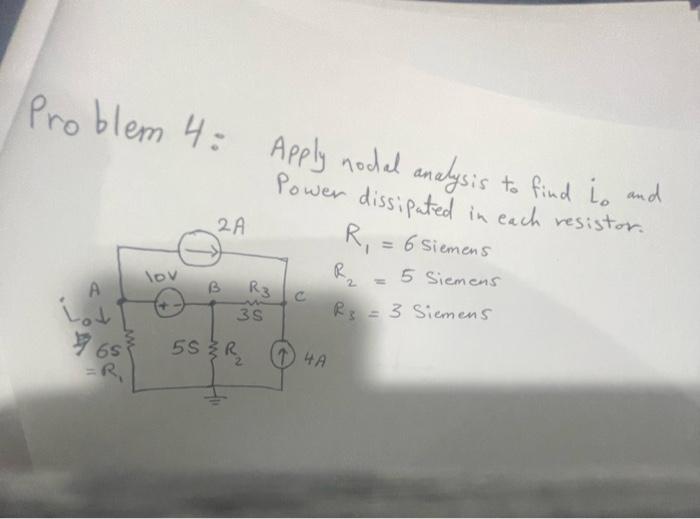 Problem 4: Apply nodal analysis to find i₀ and
Power dissipated in each resistor.
R₁ = 6 Siemens
R₂ = 5 Siemens
R₃ = 3 Siemens
2A
10V
A
+ -
B
R₃
C
3S
i₀↓
6S
= R₁
5S
R₂
4A